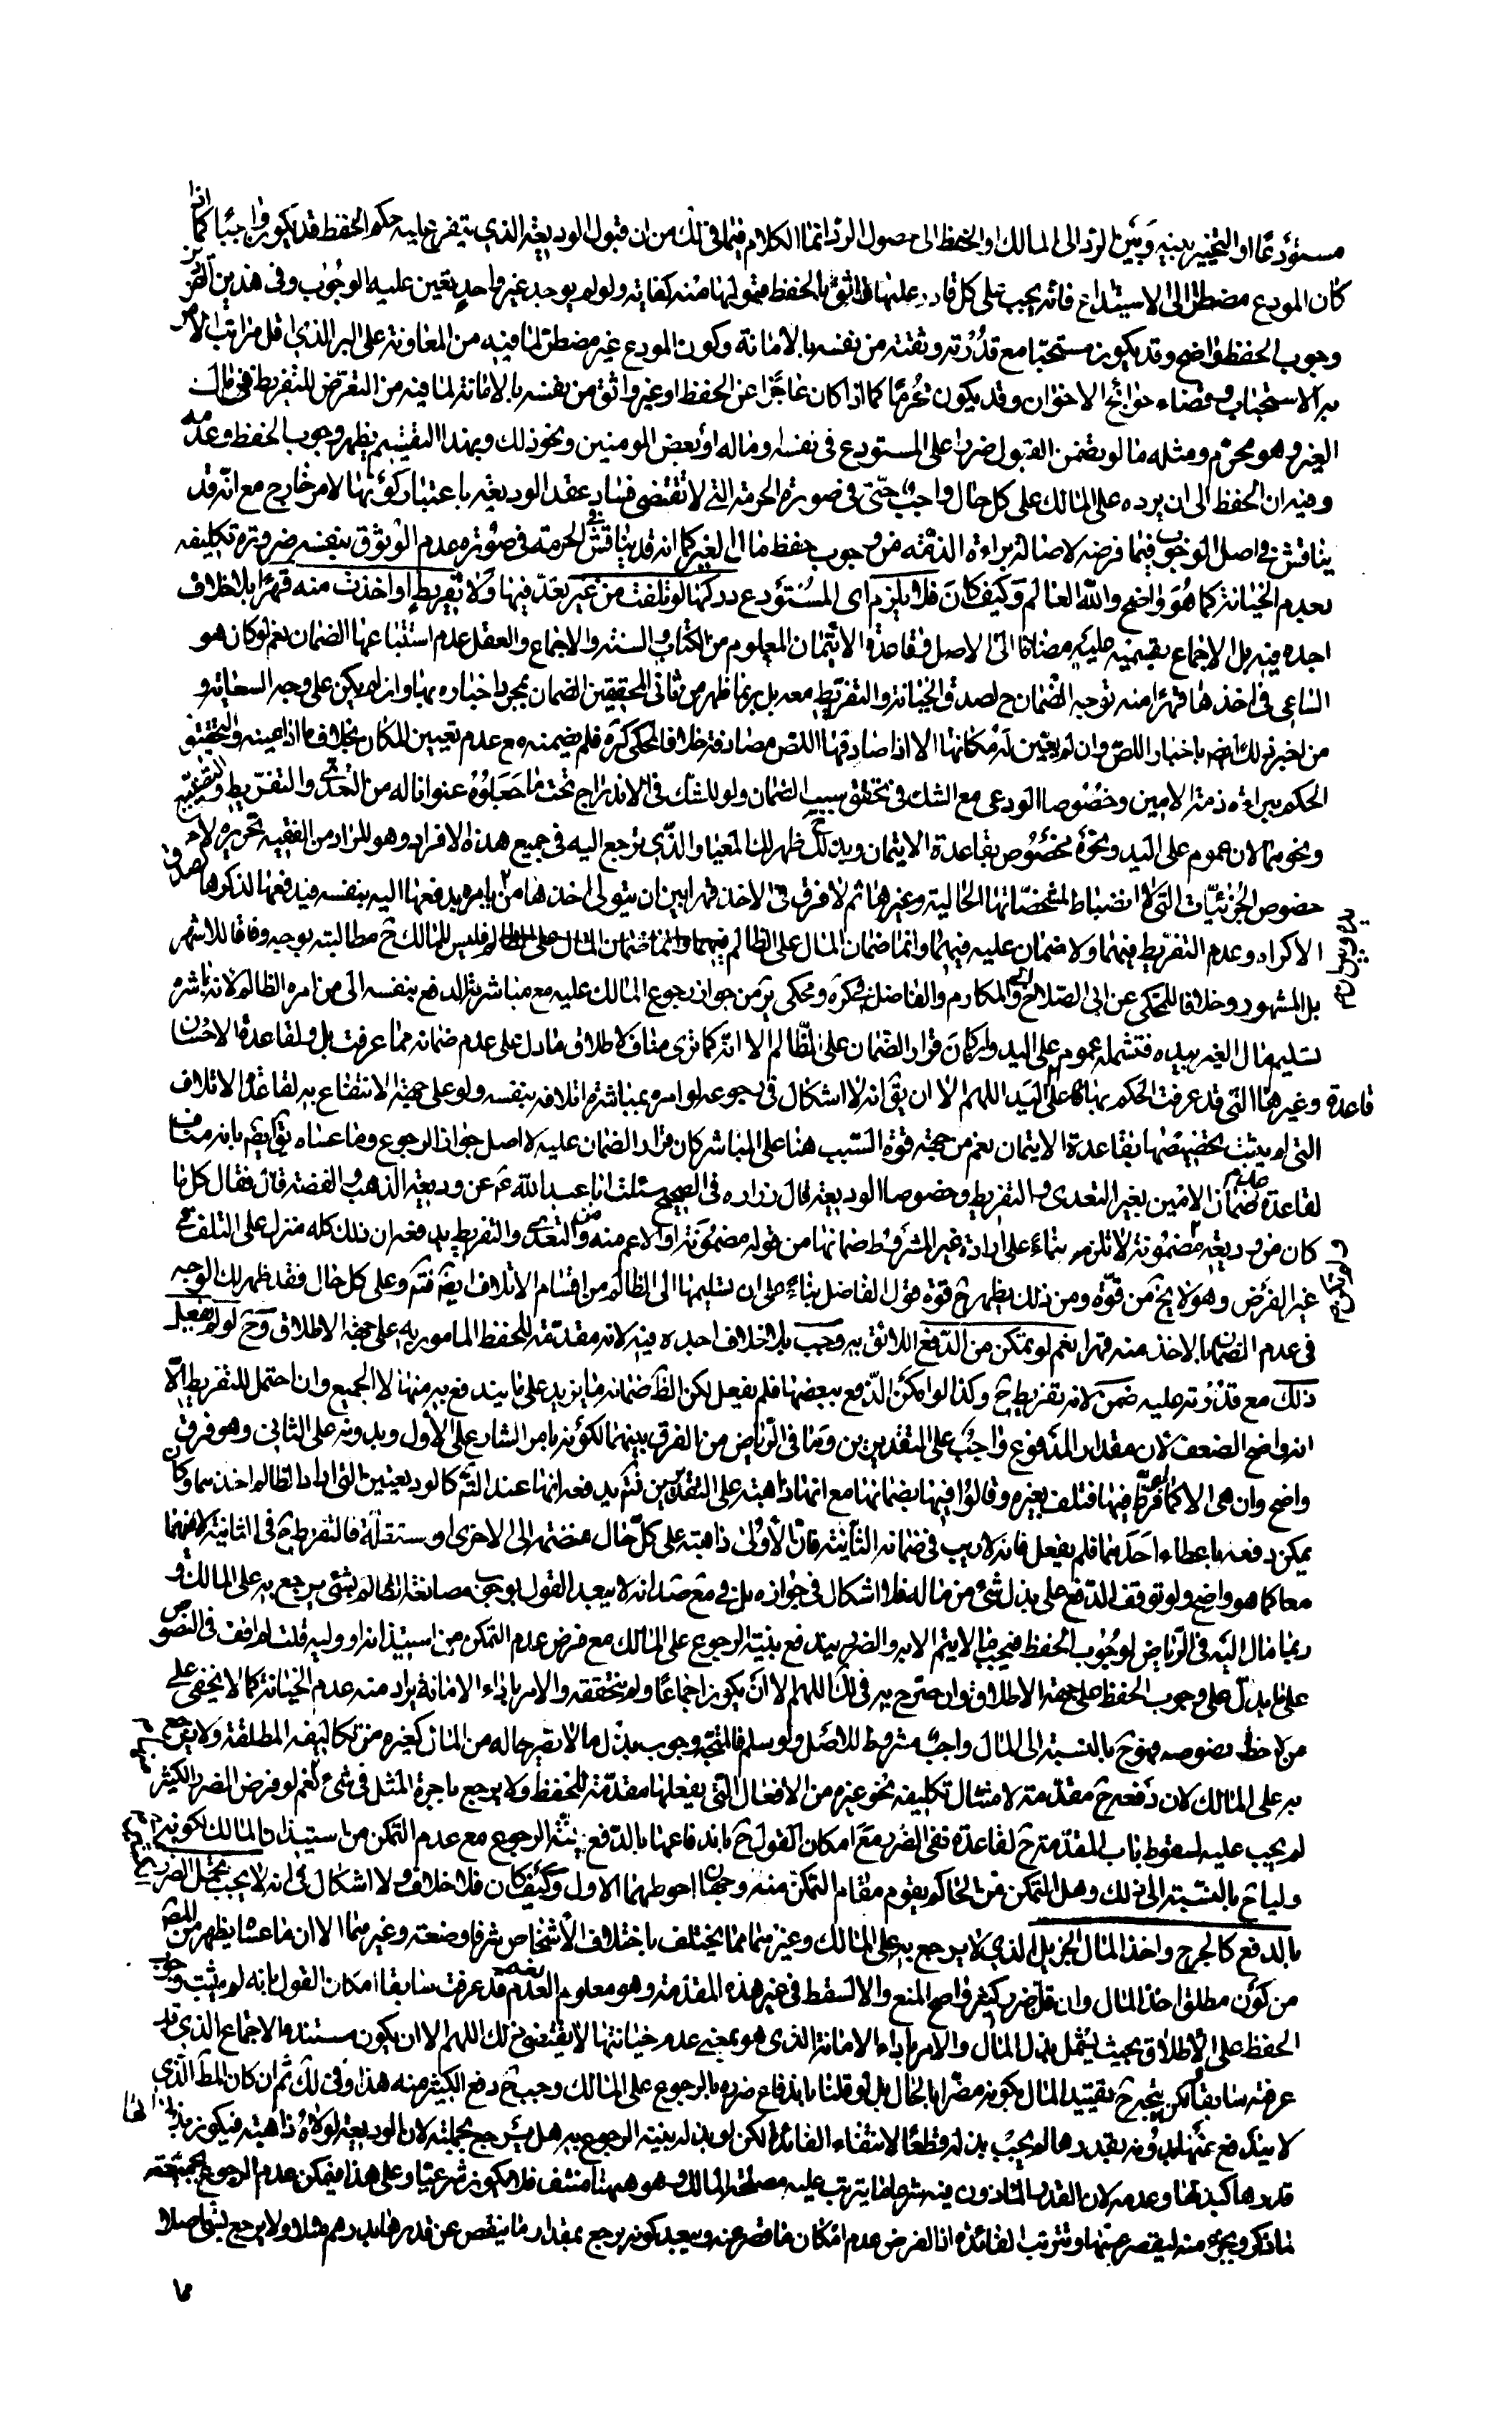 مستودعا او التخيير بينه وبين الرد الى المالك او الحفظ الى حصول الرد انما الكلام فيما في لك من ان قبول الوديعة الذي يتفرع عليه حكم الحفظ قد يكون واجبا كما اذا
كان المودع مضطرا الى الاستيداع فانه يجب على كل قادر عليها واثق بالحفظ قبولها منه كفاية ولو لم يوجد غير واحد تعين عليه الوجوب وفي هذين
وجوب الحفظ واضح وقد يكون مستحبا مع قدرته وثقته من نفسه بالامانة وكون المودع غير مضطر لما فيه من المعاونة على البر الذي اقل مراتب الامر
به الاستحباب وقضاء حوائج الاخوان وقد يكون محرما كما اذا كان عاجزا عن الحفظ او غير واثق من نفسه بالامانة لما فيه من التعرض للتفريط في مال
الغير وهو محرم ومثله ما لو تضمن القبول ضررا على المستودع في نفسه او ماله او بعض المومنين ونحو ذلك وبهذا التقسيم يظهر وجوب الحفظ وعدمه
وفيه ان الحفظ الى ان يرده على المالك على كل حال واجب حتى في صورة الحرمة التي لا تقتضي فساد عقد الوديعة باعتبار كونها لامر خارج مع انه قد
يناقش في اصل الوجوب فيما فرضه لاصالة براءة الذمة من وجوب حفظ مال الغير كما انه قد يناقش في الحرمة في صورة عدم الوثوق بنفسه ضرورة تكليفه
بعدم الخيانة كما هو واضح والله العالم وكيف كان فلا يلزم اي المستودع دركها لو تلفت من غير تعد فيها ولا تفريط او اخذت منه قهرا بلا خلاف
اجده فيه بل الاجماع بقسميه عليه مضافا الى الاصل وقاعدة الايتمان المعلوم من الكتاب والسنة والاجماع والعقل عدم استتباعها الضمان نعم لو كان هو
الساعي في اخذها قهرا منه توجه الضمان ح لصدق الخيانة والتفريط معه بل ربما ظهر من ثاني المحققين الضمان بمجرد اخباره بها وان لم يكن على وجه السعاية و
من اخبر باخبار اللص وان لم يعين له مكانها الا اذا صادقها اللص مصادفة خلافا لمحكي كره فلم يضمنه مع عدم تعيين المكان بخلاف ما اذا عينه والتحقيق
الحكم ببراءة ذمة الامين وخصوصا الودعي مع الشك في تحقق سبب الضمان ولو للشك في الاندراج تحت ما جعلوه عنوانا له من التعدي والتفريط والتضييع
ونحوها لان عموم على اليد ونحوه مخصوص بقاعدة الايتمان وبذلك ظهر لك المعيار الذي ترجع اليه في جميع هذه الافراد وهو المراد من الفقيه تحريره لا
خصوص الجزئيات التي لا انضباط لمشخصاتها الحالية وغيرها ثم لا فرق في الاخذ قهرا بين ان يتولى اخذها من او يامره بدفعها اليه بنفسه فيدفعها لذكرها لصدق
الاكراه وعدم التفريط فيهما ولا ضمان عليه فيهما وانما ضمان المال على الظالم فليس للمالك ح مطالبته بوجه وفاقا للاشهر
بل المشهور وخلافا للمحكي عن ابي الصلاح وابي المكارم والفاضل في كره ومحكي ير من جواز رجوع المالك عليه مع مباشرته الدفع بنفسه الى من امره الظالم لانه باشر
تسليم مال الغير بيده فتشمله عموم على اليد وان كان قرار الضمان على الظالم الا انه كما ترى مناف لاطلاق ما دل على عدم ضمانه مما عرفت بل ولقاعدة الاحسان
قاعدة وغيرها التي قد عرفت الحكم بها على اليد اللهم الا ان يق انه لا اشكال في رجوعه لو امره بمباشرة اتلافه بنفسه ولو على جهة الانتفاع به لقاعدة الاتلاف
التي لم يثبت تخصيصها بقاعدة الايتمان نعم من جهة قوة السبب هنا على المباشر كان قرار الضمان عليه لا اصل جواز الرجوع وما عساه يق ايضا بانه مناف
لقاعدة عدم ضمان الامين بغير التعدي والتفريط وخصوصا الوديعة قال زراره في الصحيح سئلت ابا عبد الله ع عن وديعة الذهب والفضة قال فقال كل ما
كان من وديعة مضمونة لا تلزم بناء على ارادة غير المشروط ضمانها من قوله مضمونة او الاعم منه ومن التعدي والتفريط يدفعه ان ذلك كله منزل على التلف في
غير الفرض وهو لا يخ من قوة ومن ذلك يظهر ح قوة قول الفاضل بناء على ان تسليمها الى الظالم من اقسام الاتلاف ايضا فتم وعلى كل حال فقد ظهر لك الوجه
في عدم الضمان بالاخذ منه قهرا نعم لو تمكن من الدفع اللائق به وجب بلا خلاف اجده فيه لانه مقدمة للحفظ المامور به على جهة الاطلاق وح لو لم يفعل
ذلك مع قدرته عليه ضمن لانه تفريط ح وكذا لو امكن الدفع ببعضها فلم يفعل لكن الظ ضمانه ما يزيد على ما يندفع به منها لا الجميع وان احتمل للتفريط الا
انه واضح الضعف لان مقدار المدفوع واجب على التقديرين وما في الرياض من الفرق بينهما لكونه بامر الشارع على الاول وبدونه على الثاني وهو فرق
واضح وان هي الا كما لو فرط فيها فتلف بغيره وقالوا فيها بضمانها مع انها ذاهبة على التقديرين فتم يدفعه انها عند التم كالوديعتين التي اراد الظالم اخذهما وكان
يمكن دفعه باعطاء احدهما فلم يفعل فانه لا ريب في ضمانه الثانية فان الاولى ذاهبة على كل حال منضمة الى الاخرى او مستقلة فالتفريط ح في الثانية لا فيهما
معا كما هو واضح ولو توقف الدفع على بذل شئ من ماله فلا اشكال في جوازه بل في مع صد انه لا يبعد القول بوجوب مصانعة الظالم بشئ يرجع به على المالك و
ربما مال اليه في الرياض لوجوب الحفظ فيجب ما لا يتم الا به والضرر يندفع بنية الرجوع على المالك مع فرض عدم التمكن من استيذانه او وليه قلت لم اقف في النصوص
على ما يدل على وجوب الحفظ على جهة الاطلاق وان صرح به في لك اللهم الا ان يكون اجماعا ولم نتحققه والامر باداء الامانة يراد منه عدم الخيانة كما لا يخفى على
من لاحظ نصوصه فهو ح بالنسبة الى المال واجب مشروط للاصل ولو سلم فالمتجه وجوب بذل ما لا يضر بحاله من المال كغيره من تكاليفه المطلقة ولا يرجع
به على المالك لان دفعه ح مقدمة لامتثال تكليفه نحو غيره من الافعال التي يفعلها مقدمة للحفظ ولا يرجع باجرة المثل في شئ نعم لو فرض الضرر الكثير
لم يجب عليه لسقوط باب المقدمة ح لقاعدة نفي الضرر مع امكان القول ح باندفاعها بالدفع بنية الرجوع مع عدم التمكن من استيذان المالك لكونه
وليا ح بالنسبة الى ذلك وهل التمكن من الحاكم يقوم مقام التمكن منه وجهان احوطهما الاول وكيف كان فلا خلاف ولا اشكال في انه لا يجب تحمل الضرر
بالدفع كالجرح واخذ المال الجزيل الذي لا يرجع به على المالك وغيرهما مما يختلف باختلاف الاشخاص شرفا وضعة وغيرهما الا ان ما عساه يظهر من بعض
من كون مطلق اخذ المال وان قل ضرر كثير واضح المنع والا لسقط في غير هذه المقدمة وهو معلوم العدم نعم قد عرفت سابقا امكان القول بانه لم يثبت وجوب
الحفظ على الاطلاق بحيث يشمل بذل المال والامر باداء الامانة الذي هو بمعنى عدم خيانتها لا يقتضي ذلك اللهم الا ان يكون مستنده الاجماع الذي قد
عرفته سابقا لكن يتجه ح تقييد المال بكونه مضرا بالحال بل لو قلنا باندفاع ضرره بالرجوع على المالك وجب ح دفع الكثير منه هذا وفي لك ثم ان كان المط الذي
لا يندفع عنها بدونه بقدرها لم يجب بذله قطعا لانتفاء الفائدة لكن لو بذله بنية الرجوع به هل يرجع بجملته لان الوديعة لولاه ذاهبة فيكون بذل
قدرها كبدلها وعدمه لان القدر الماذون فيه شرعا ما يترتب عليه مصلحة المالك وهو ههنا منتف فلا يكون شرعيا وعلى هذا فيمكن عدم الرجوع
لما ذكر ويجئ منه ليقصر عنها وتترتب الفائدة اذا الفرض عدم امكان ما قصر عنه ويبعد كونه يرجع بمقدار ما ينقص عن قدرها بدرهم مثلا ولا يرجع بشئ اصلا